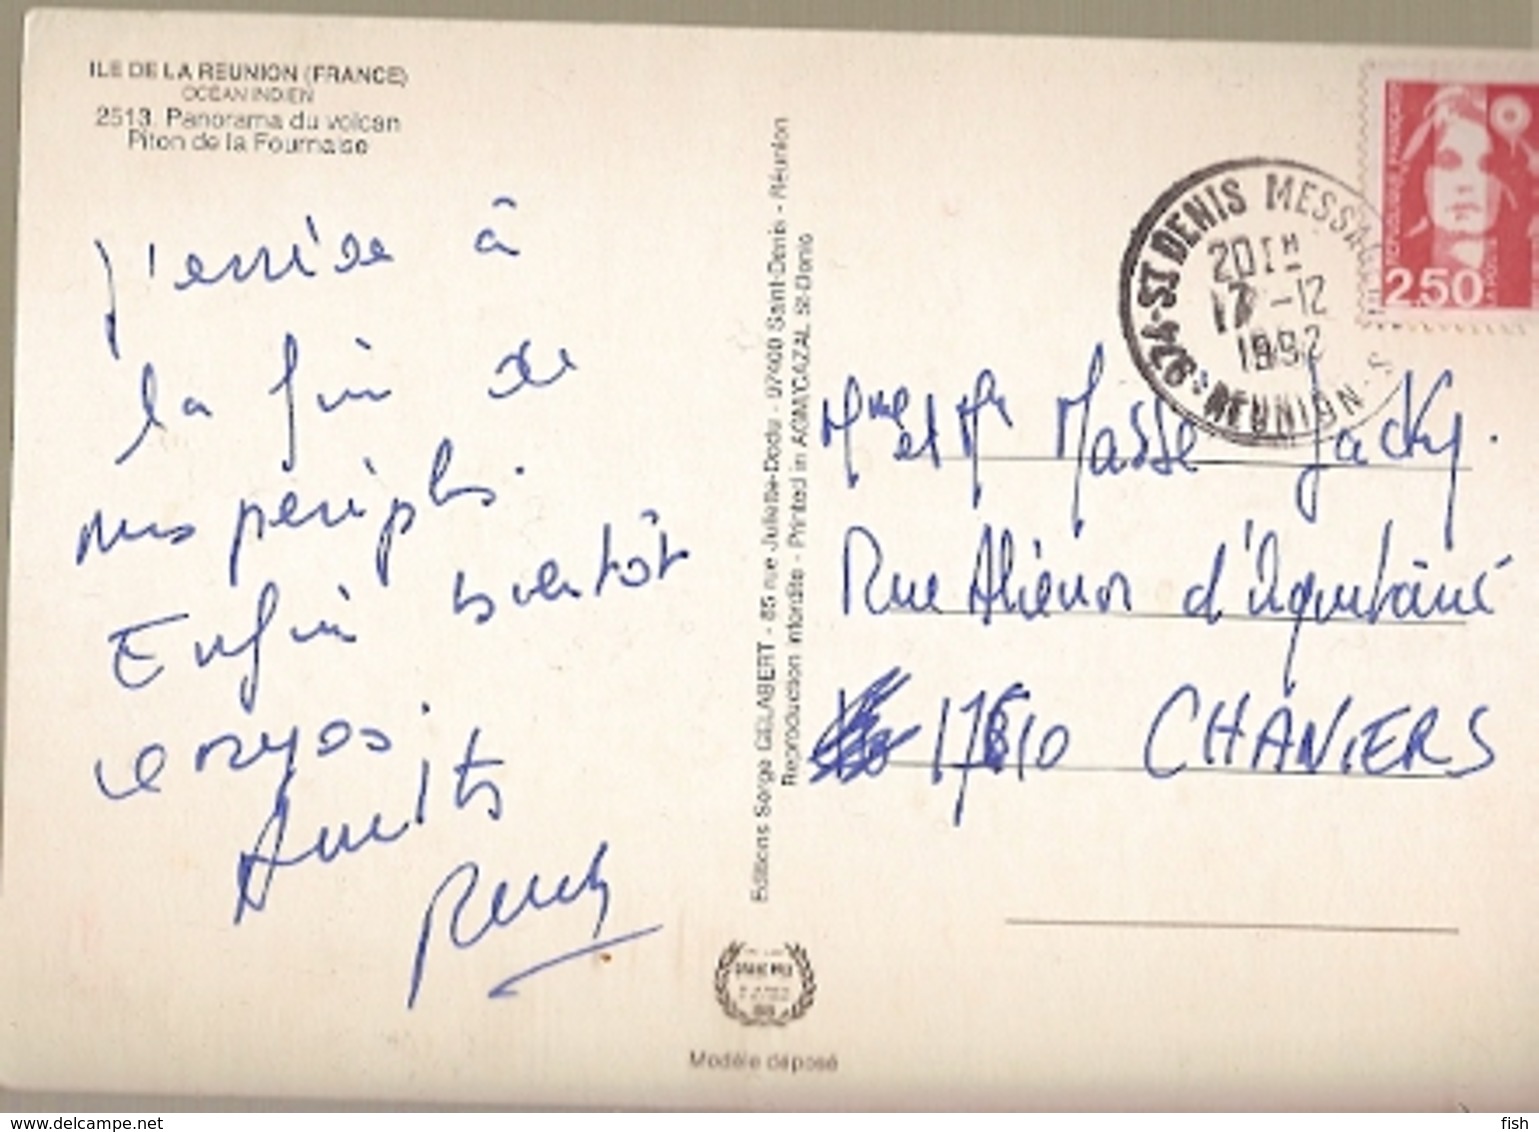 ILE DE LA REUNION (FRANCE)
OCEAN INDIEN
2513. Panorama du volcan
Piton de la Fournaise
j'arrive à
la fin de
mes périples.
Enfin bientôt
le repos.
Amitiés
Editions Serge GELABERT - 85 rue Juliette-Dodu - 97400 Saint-Denis - Réunion
Reproduction interdite - Printed in AGMV/CAZAL St-Denis
974-ST DENIS MESSAGERIES
20 H
17 -12
1992
REUNION
REPUBLIQUE FRANÇAISE
2,50
LA POSTE
Mme et Mr Masse Jacky.
Rue Aliénor d'Aquitaine
17610 CHANIERS
GRAND PRIX
Modèle déposé
www.delcampe.net
fish